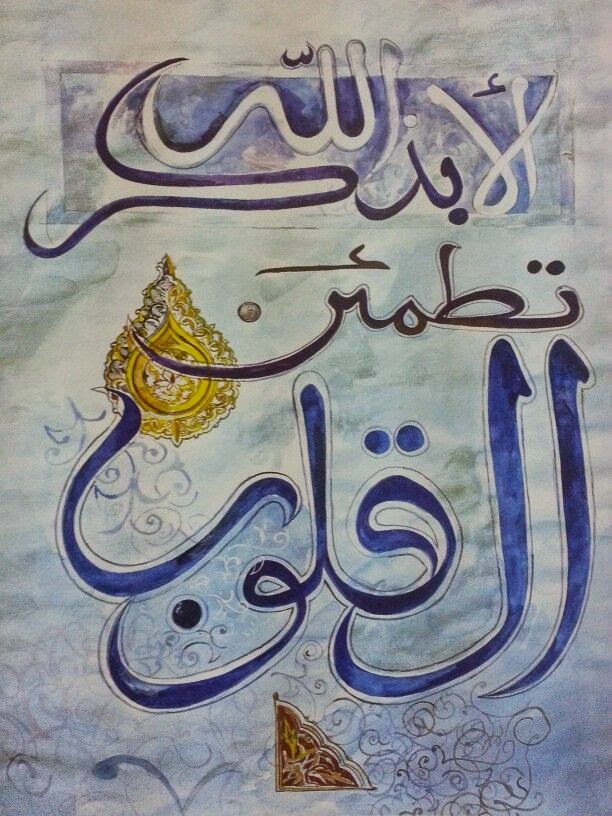 ألا بذكر الله
تطمئن
القلوب